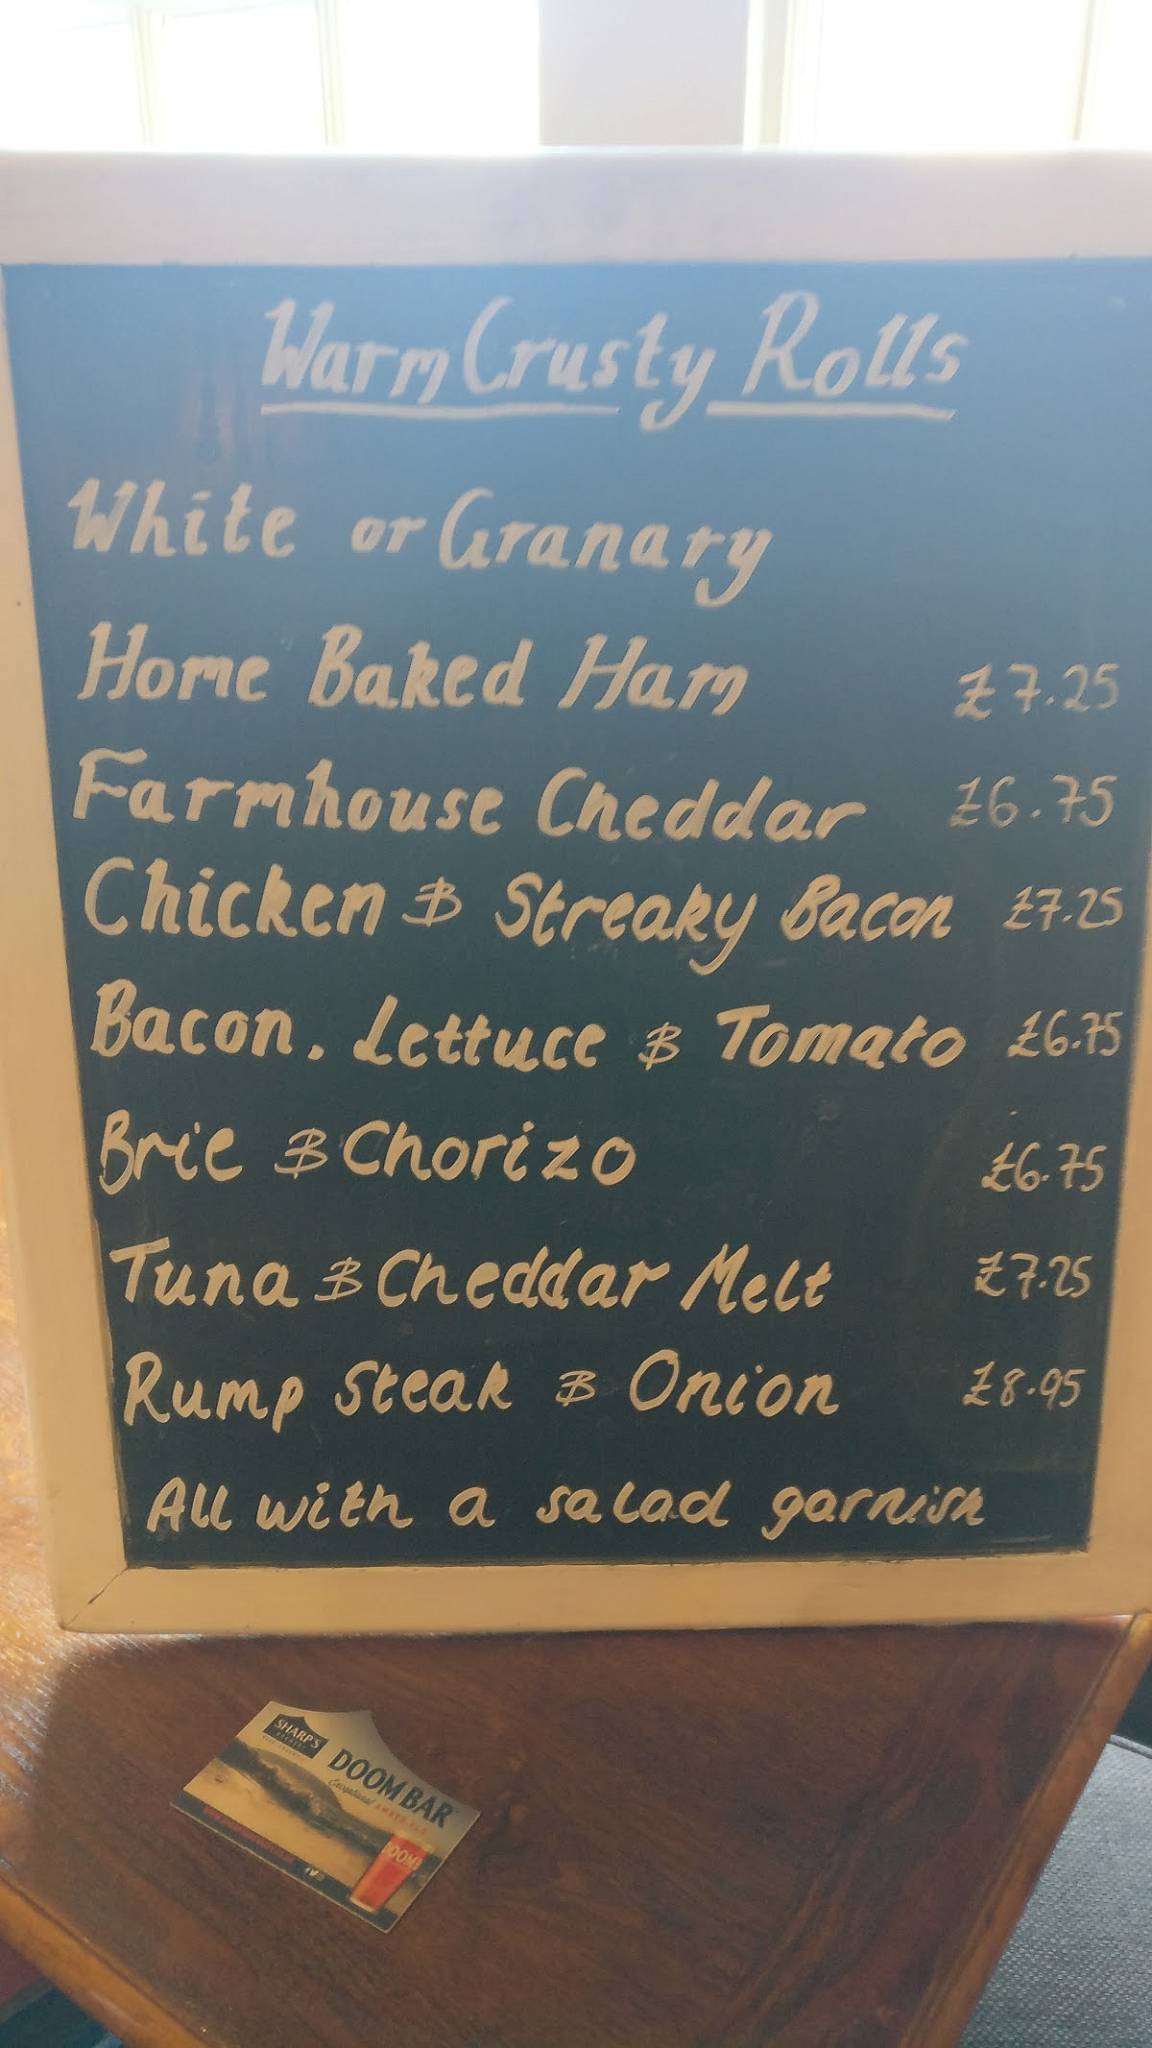 Warm Crusty Rolls
White or Granary
Home Baked Ham £7.25
Farmhouse Cheddar £6.75
Chicken & Streaky Bacon £7.25
Bacon. Lettuce & Tomato £6.75
Brie & Chorizo £6.75
Tuna & Cheddar Melt £7.25
Rump Steak & Onion £8.95
All with a salad garnish
SHARP'S
BREWERY
DOOM BAR
Exceptional AMBER ALE
DOOM